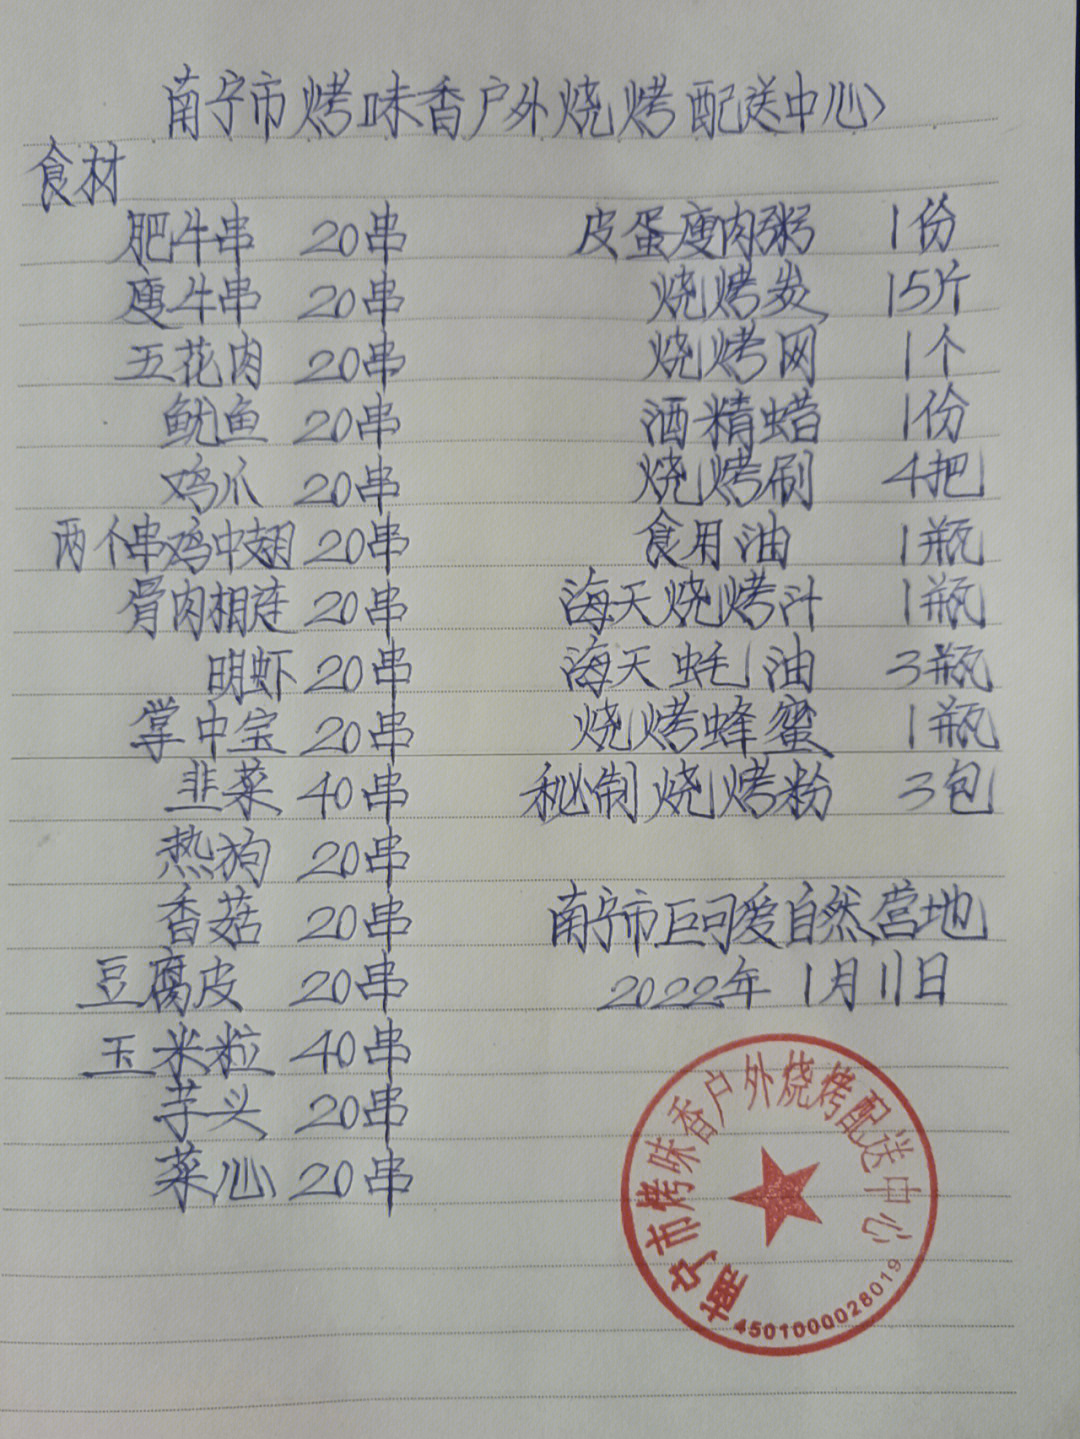 南宁市烤味香户外烧烤配送中心
食材
肥牛串 20串
瘦牛串 20串
五花肉 20串
鱿鱼 20串
鸡爪 20串
两个串鸡中翅 20串
骨肉相连 20串
明虾 20串
掌中宝 20串
韭菜 40串
热狗 20串
香菇 20串
豆腐皮 20串
玉米粒 40串
芋头 20串
菜心 20串
皮蛋瘦肉粥 1份
烧烤炭 15片
烧烤网 1个
酒精蜡 1份
烧烤刷 4把
食用油 1瓶
海天烧烤汁 1瓶
海天蚝油 3瓶
烧烤蜂蜜 1瓶
秘制烧烤粉 3包
南宁市巨可爱自然营地
2022年1月11日
南宁市烤味香户外烧烤配送中心
4501000028019